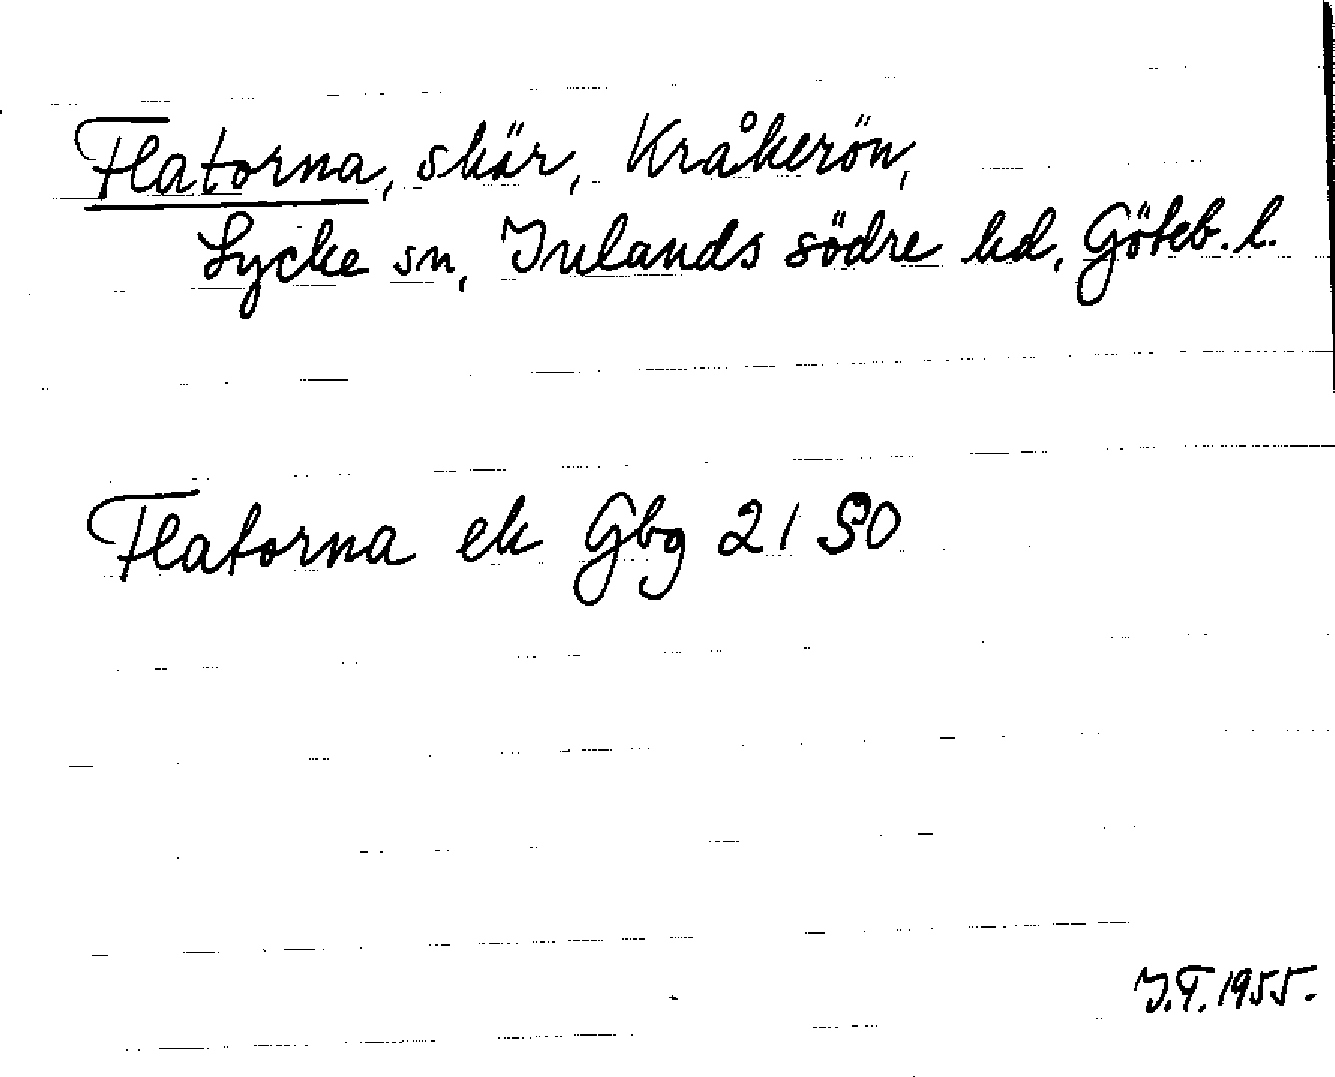 Flatorna, skär, Kråkerön,
Lycke sn, Inlands södre hd, Göteb. l.
Flatorna ek Gbg 21 SO
I.T. 1955.